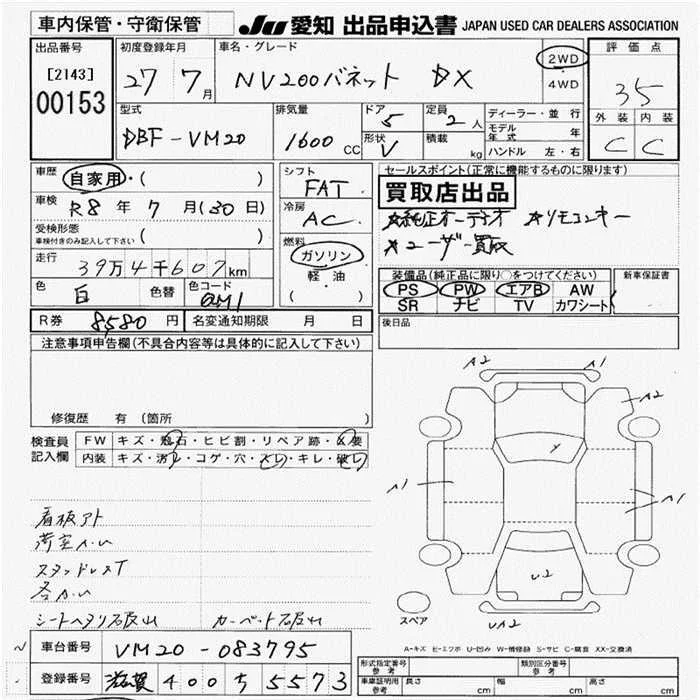 車内保管・守衛保管
JU 愛知 出品申込書 JAPAN USED CAR DEALERS ASSOCIATION
出品番号
[2143]
00153
初度登録年月
27 7月
車名・グレード
NV200バネット DX
2WD
4WD
評価点
35
外装 内装
C C
型式
DBF-VM20
排気量
1600 CC
ドア
5
形状
V
定員
2人
積載
kg
ディーラー・並行
モデル年式 年
ハンドル 左・右
車歴
自家用・( )
車検
R8年 7月(30日)
受検形態
車検付きのみ記入して下さい
( )
走行
39万4千607km
色
白
色替
色コード
QM1
シフト
FAT
冷房
AC
燃料
ガソリン
軽・油
( )
セールスポイント(正常に機能するものに限ります)
買取店出品
★純正オーディオ ★リモコンキー
★ユーザー買取
装備品(純正品に限り○をつけてください)
PS PW エアB AW
SR ナビ TV カワシート
新車保証書
後日品
R券 8580円
名変通知期限 月 日
注意事項申告欄(不具合内容等は具体的に記入して下さい)
修復歴 有(箇所 )
検査員
記入欄
FW キズ・飛石・ヒビ割・リペア跡・X要
内装 キズ・汚レ・コゲ・穴・スレ・キレ・破レ
看板アト
荷室
各
シートヘタリ カーペット破れ
A2
A1
A2
A1
A1
U2
スペア
A-キズ E-エクボ U-凹み W-補修跡 S-サビ C-腐食 XX-交換済
車台番号 VM20-083795
登録番号 滋賀 400 ち 5573
形式指定番号
参考
類別区分番号
参考
車庫証明用
参考
長さ cm 幅 cm 高さ cm